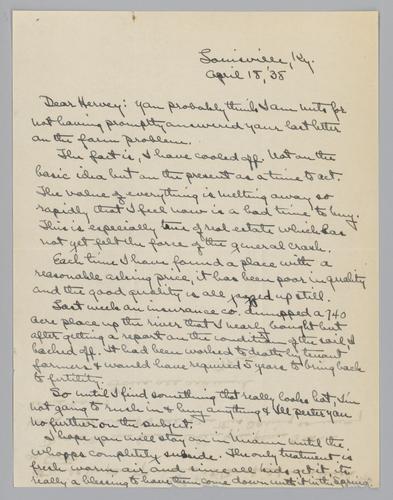 Louisville, Ky.
April 18, '38
Dear Hervey: You probably think I am nuts for
not having promptly answered your last letter
on the farm problem.
The fact is, I have cooled off. Not on the
basic idea but on the present as a time to act.
The value of everything is melting away so
rapidly that I feel now is a bad time to buy.
This is especially true of real estate which has
not yet felt the force of the general crash.
Each time I have found a place with a
reasonable asking price, it has been poor in quality
and the good quality is all jazzed up still.
Last week an insurance co. dumped a 740
acre place up the river that I nearly bought but
after getting a report on the condition of the soil, I
backed off. It had been worked to death by tenant
farmers & would have required 5 years to bring back
to fertility.
So until I find something that really looks hot, I'm
not going to rush in & buy anything & I'll pester you
no further on the subject.
I hope you will stay on in Miami until the
whoops completely subside. The only treatment is
fresh warm air and since all kids get it, its
really a blessing to have them come down with it in the Spring